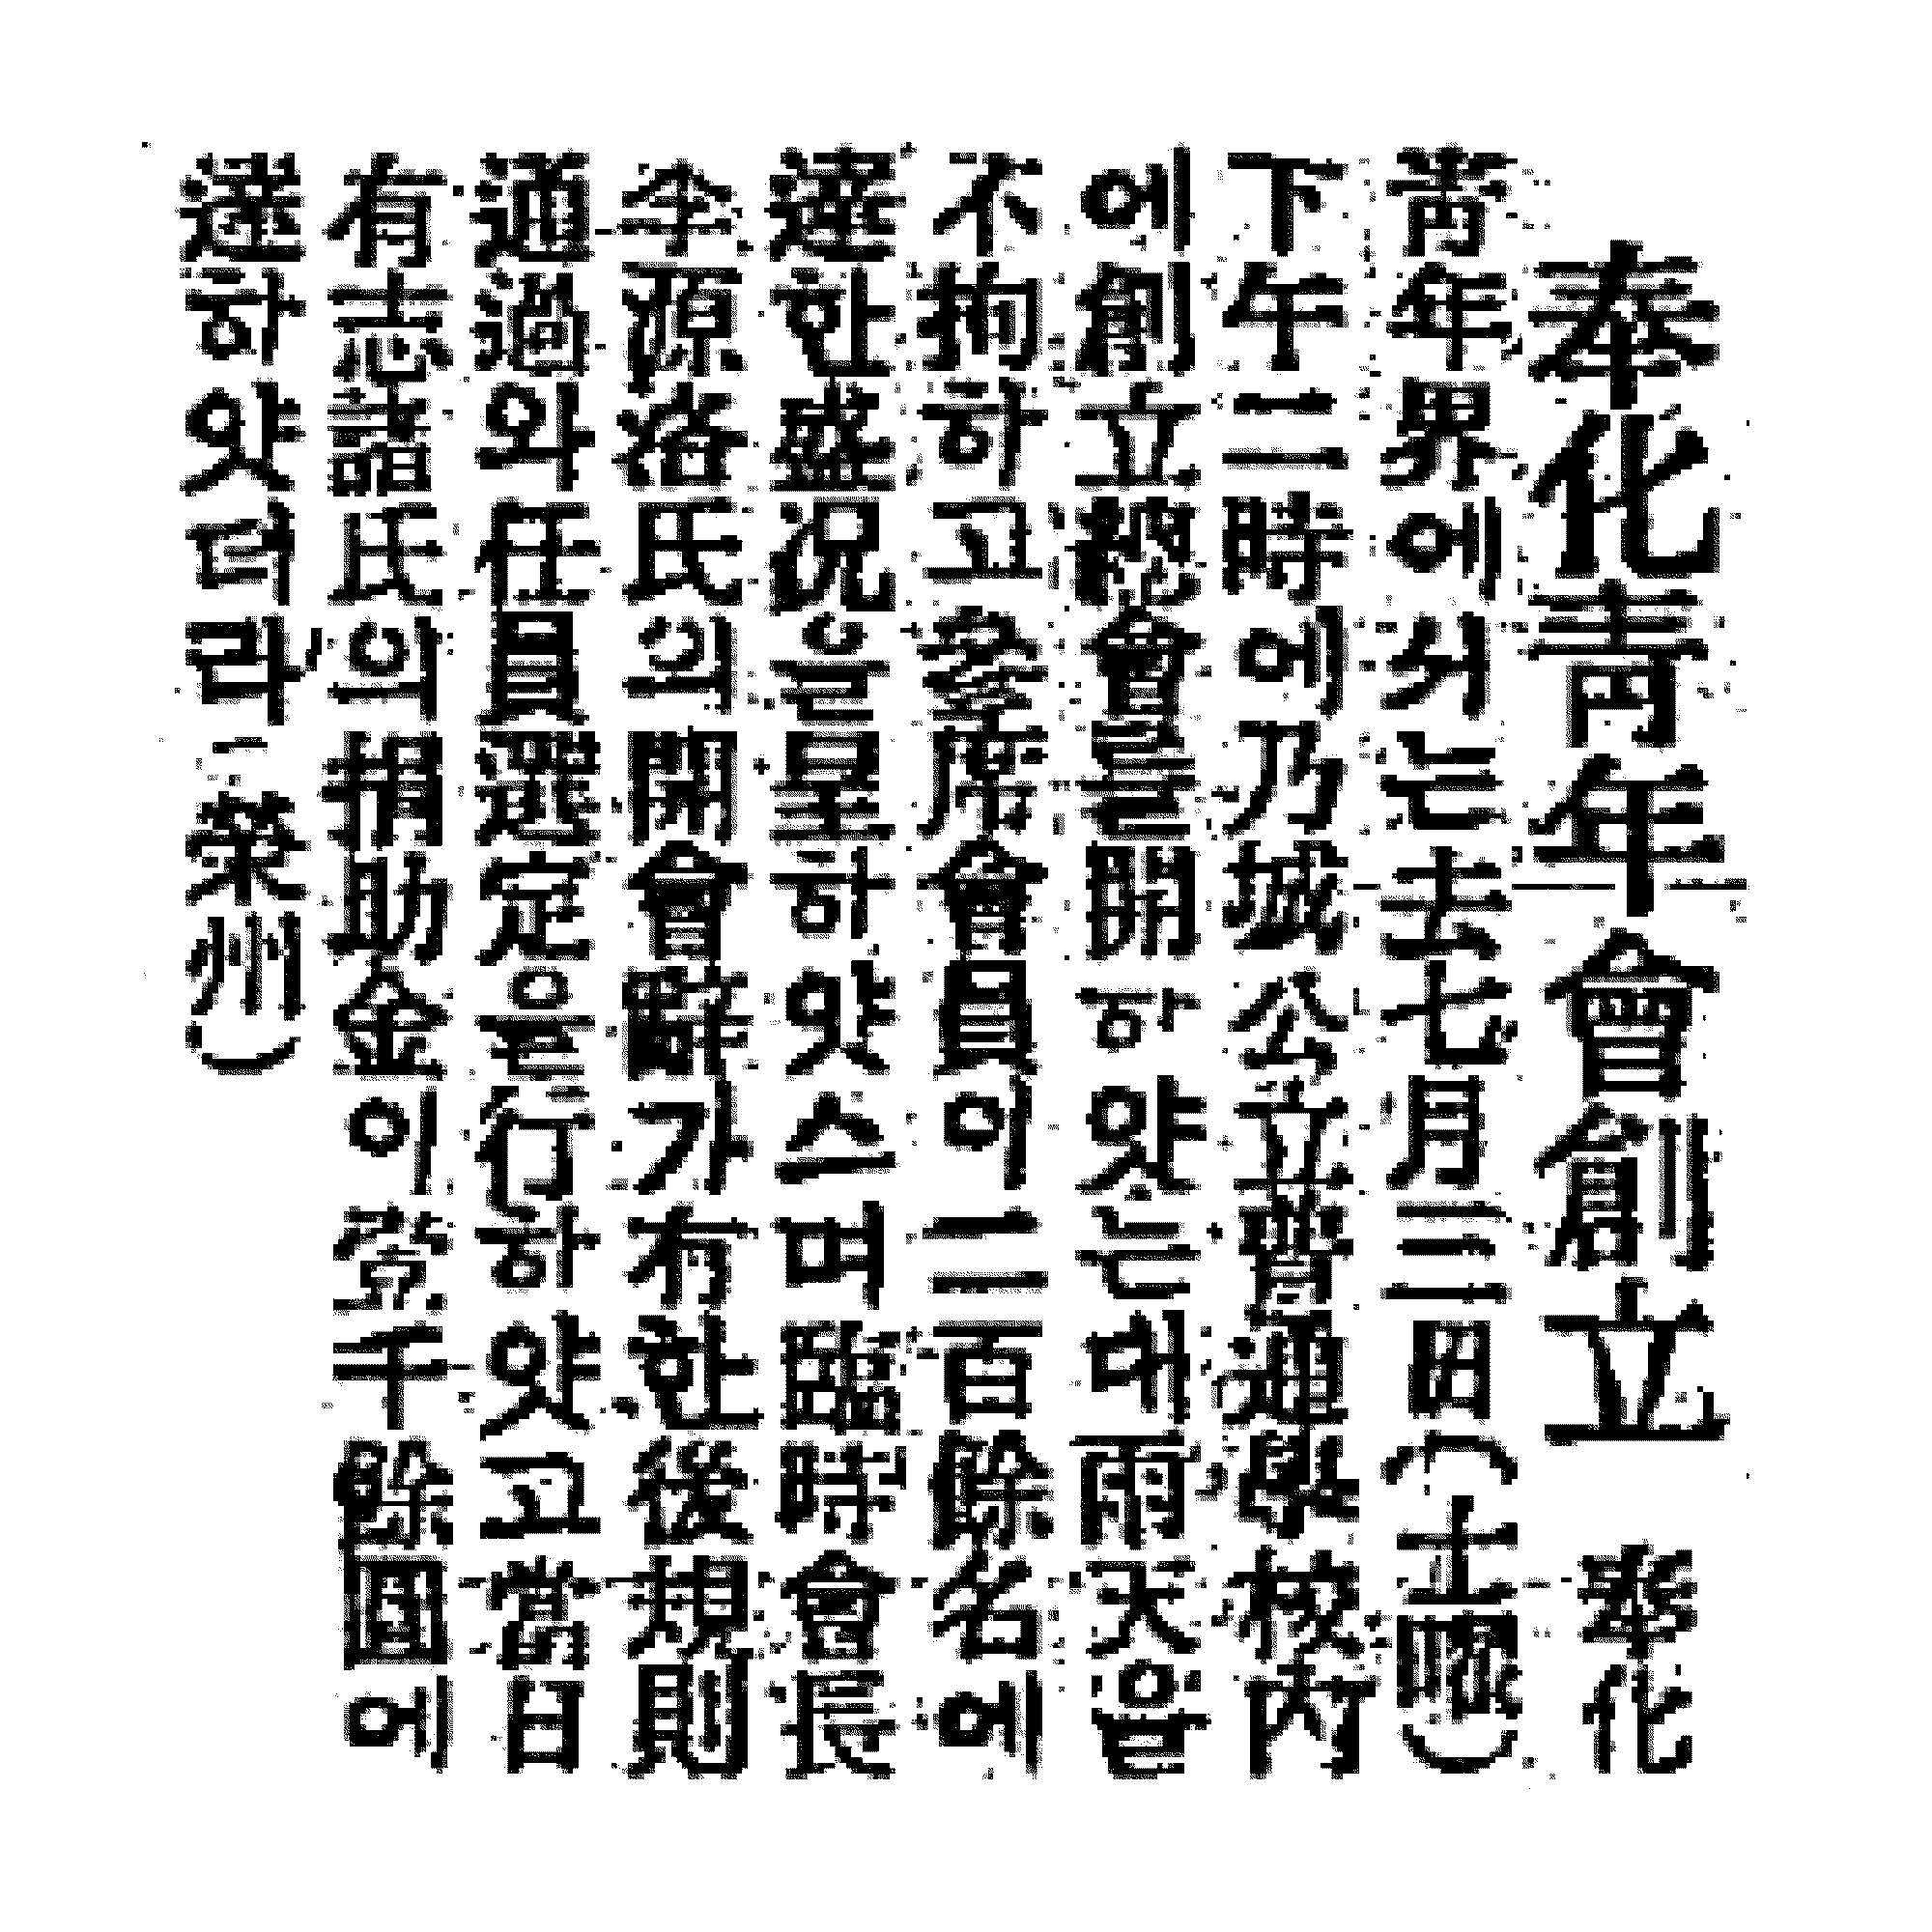 奉化靑年會創立 奉化
靑年界에서는去七月三日(土曜)
下午二時에乃城公立普通學校內
에創立總會를開하얏는대雨天을
不拘하고參席會員이二百餘名에
達한盛况을呈하얏스며臨時會長
李源洛氏의開會辭가有한後規則
通過와任員選定을行하얏고當日
有志諸氏의捐助金이千餘圓에
達하얏더라(榮州)